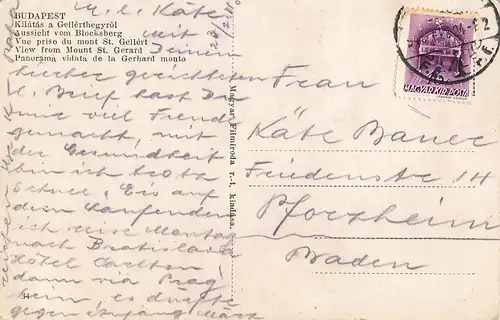 BUDAPEST
Kilátás a Gellérthegyről
Aussicht vom Blocksberg
Vue prise du mont St. Gellért
View from Mount St. Gerard
Panorama vidata de la Gerhard monto
M. l. Käte
mit Deinem
hierher gerichteten
l. Brief hast Du
mir viel Freude
gemacht, mit
der Gesundheit
bin ich trotz
Schnee, Eis auf
dem Laufenden
ich reise Montag
nach Bratislava
Hotel Carlton
dann via Prag
heim, es dürfte
gegen Anfang März
Magyar Filmiroda r.-t. kiadása.
MAGYAR KIR. POSTA
Frau
Käte Bauer
Friedenstr 14
Pforzheim
Baden